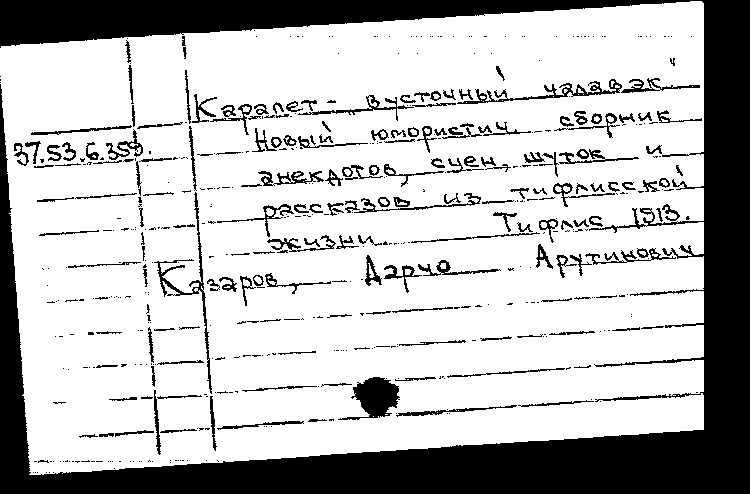 Карапет - вусточный чалавэк."
37.53.6.359. Новый юмористич. сборник
анекдотов, сцен, шуток и
рассказов из тифлисской
жизни. Тифлис, 1913.
Казаров, Дарчо Арутинович